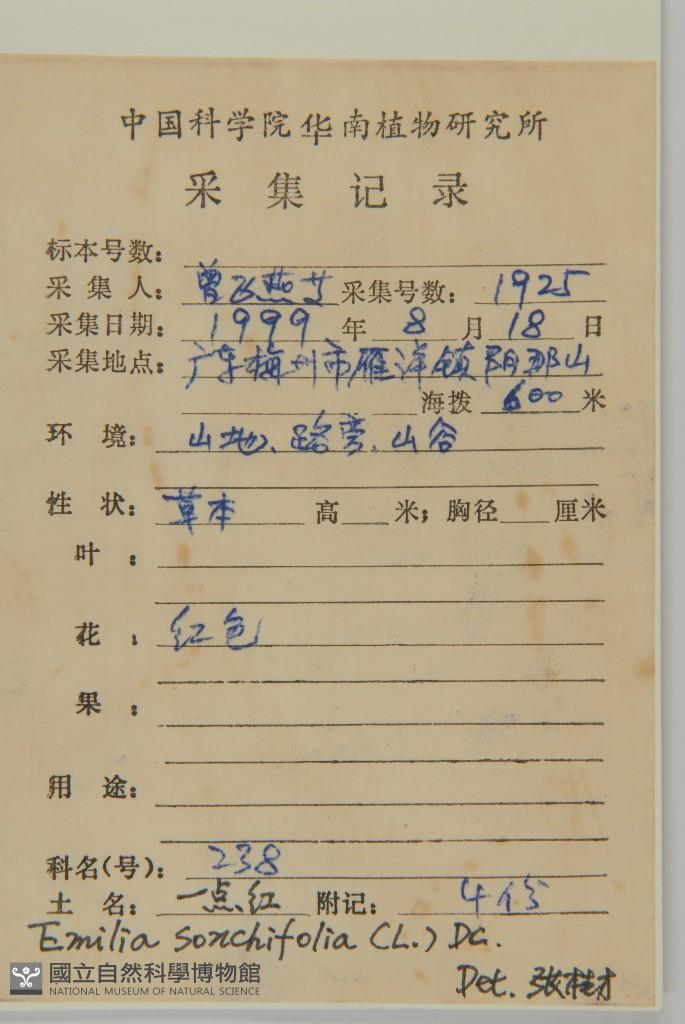 中国科学院华南植物研究所
采集记录
标本号数：
采集人：曾飞燕等 采集号数：1925
采集日期：1999年8月18日
采集地点：广东梅州市雁洋镇阴那山
海拨 600 米
环境：山地、路旁、山谷
性状：草本 高 米；胸径 厘米
叶：
花：红色
果：
用途：
科名(号)：238
土名：一点红 附记：4份
Emilia sonchifolia (L.) DC.
Det. 张桂才
國立自然科學博物館
NATIONAL MUSEUM OF NATURAL SCIENCE